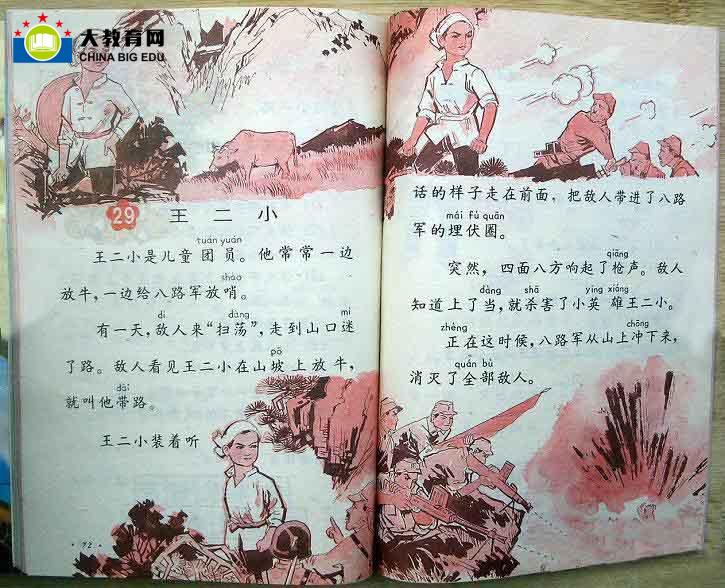 大教育网
CHINA BIG EDU
29 王二小
tuán yuán
王二小是儿童团员。他常常一边
shào
放牛，一边给八路军放哨。
dí dàng mí
有一天，敌人来“扫荡”，走到山口迷
pō
了路。敌人看见王二小在山坡上放牛，
dài
就叫他带路。
王二小装着听
·72·
话的样子走在前面，把敌人带进了八路
mái fú quān
军的埋伏圈。
qiāng
突然，四面八方响起了枪声。敌人
dàng shā yīng xióng
知道上了当，就杀害了小英雄王二小。
zhèng chōng
正在这时候，八路军从山上冲下来，
quán bù
消灭了全部敌人。